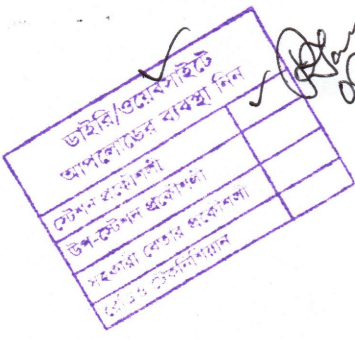 ডাইরি/ওয়েবসাইটে
আপলোডের ব্যবস্থা নিন
স্টেশন প্রকৌশলী
উপ-স্টেশন প্রকৌশলী
সহকারী বেতার প্রকৌশলী
রেডিও টেকনিশিয়ান